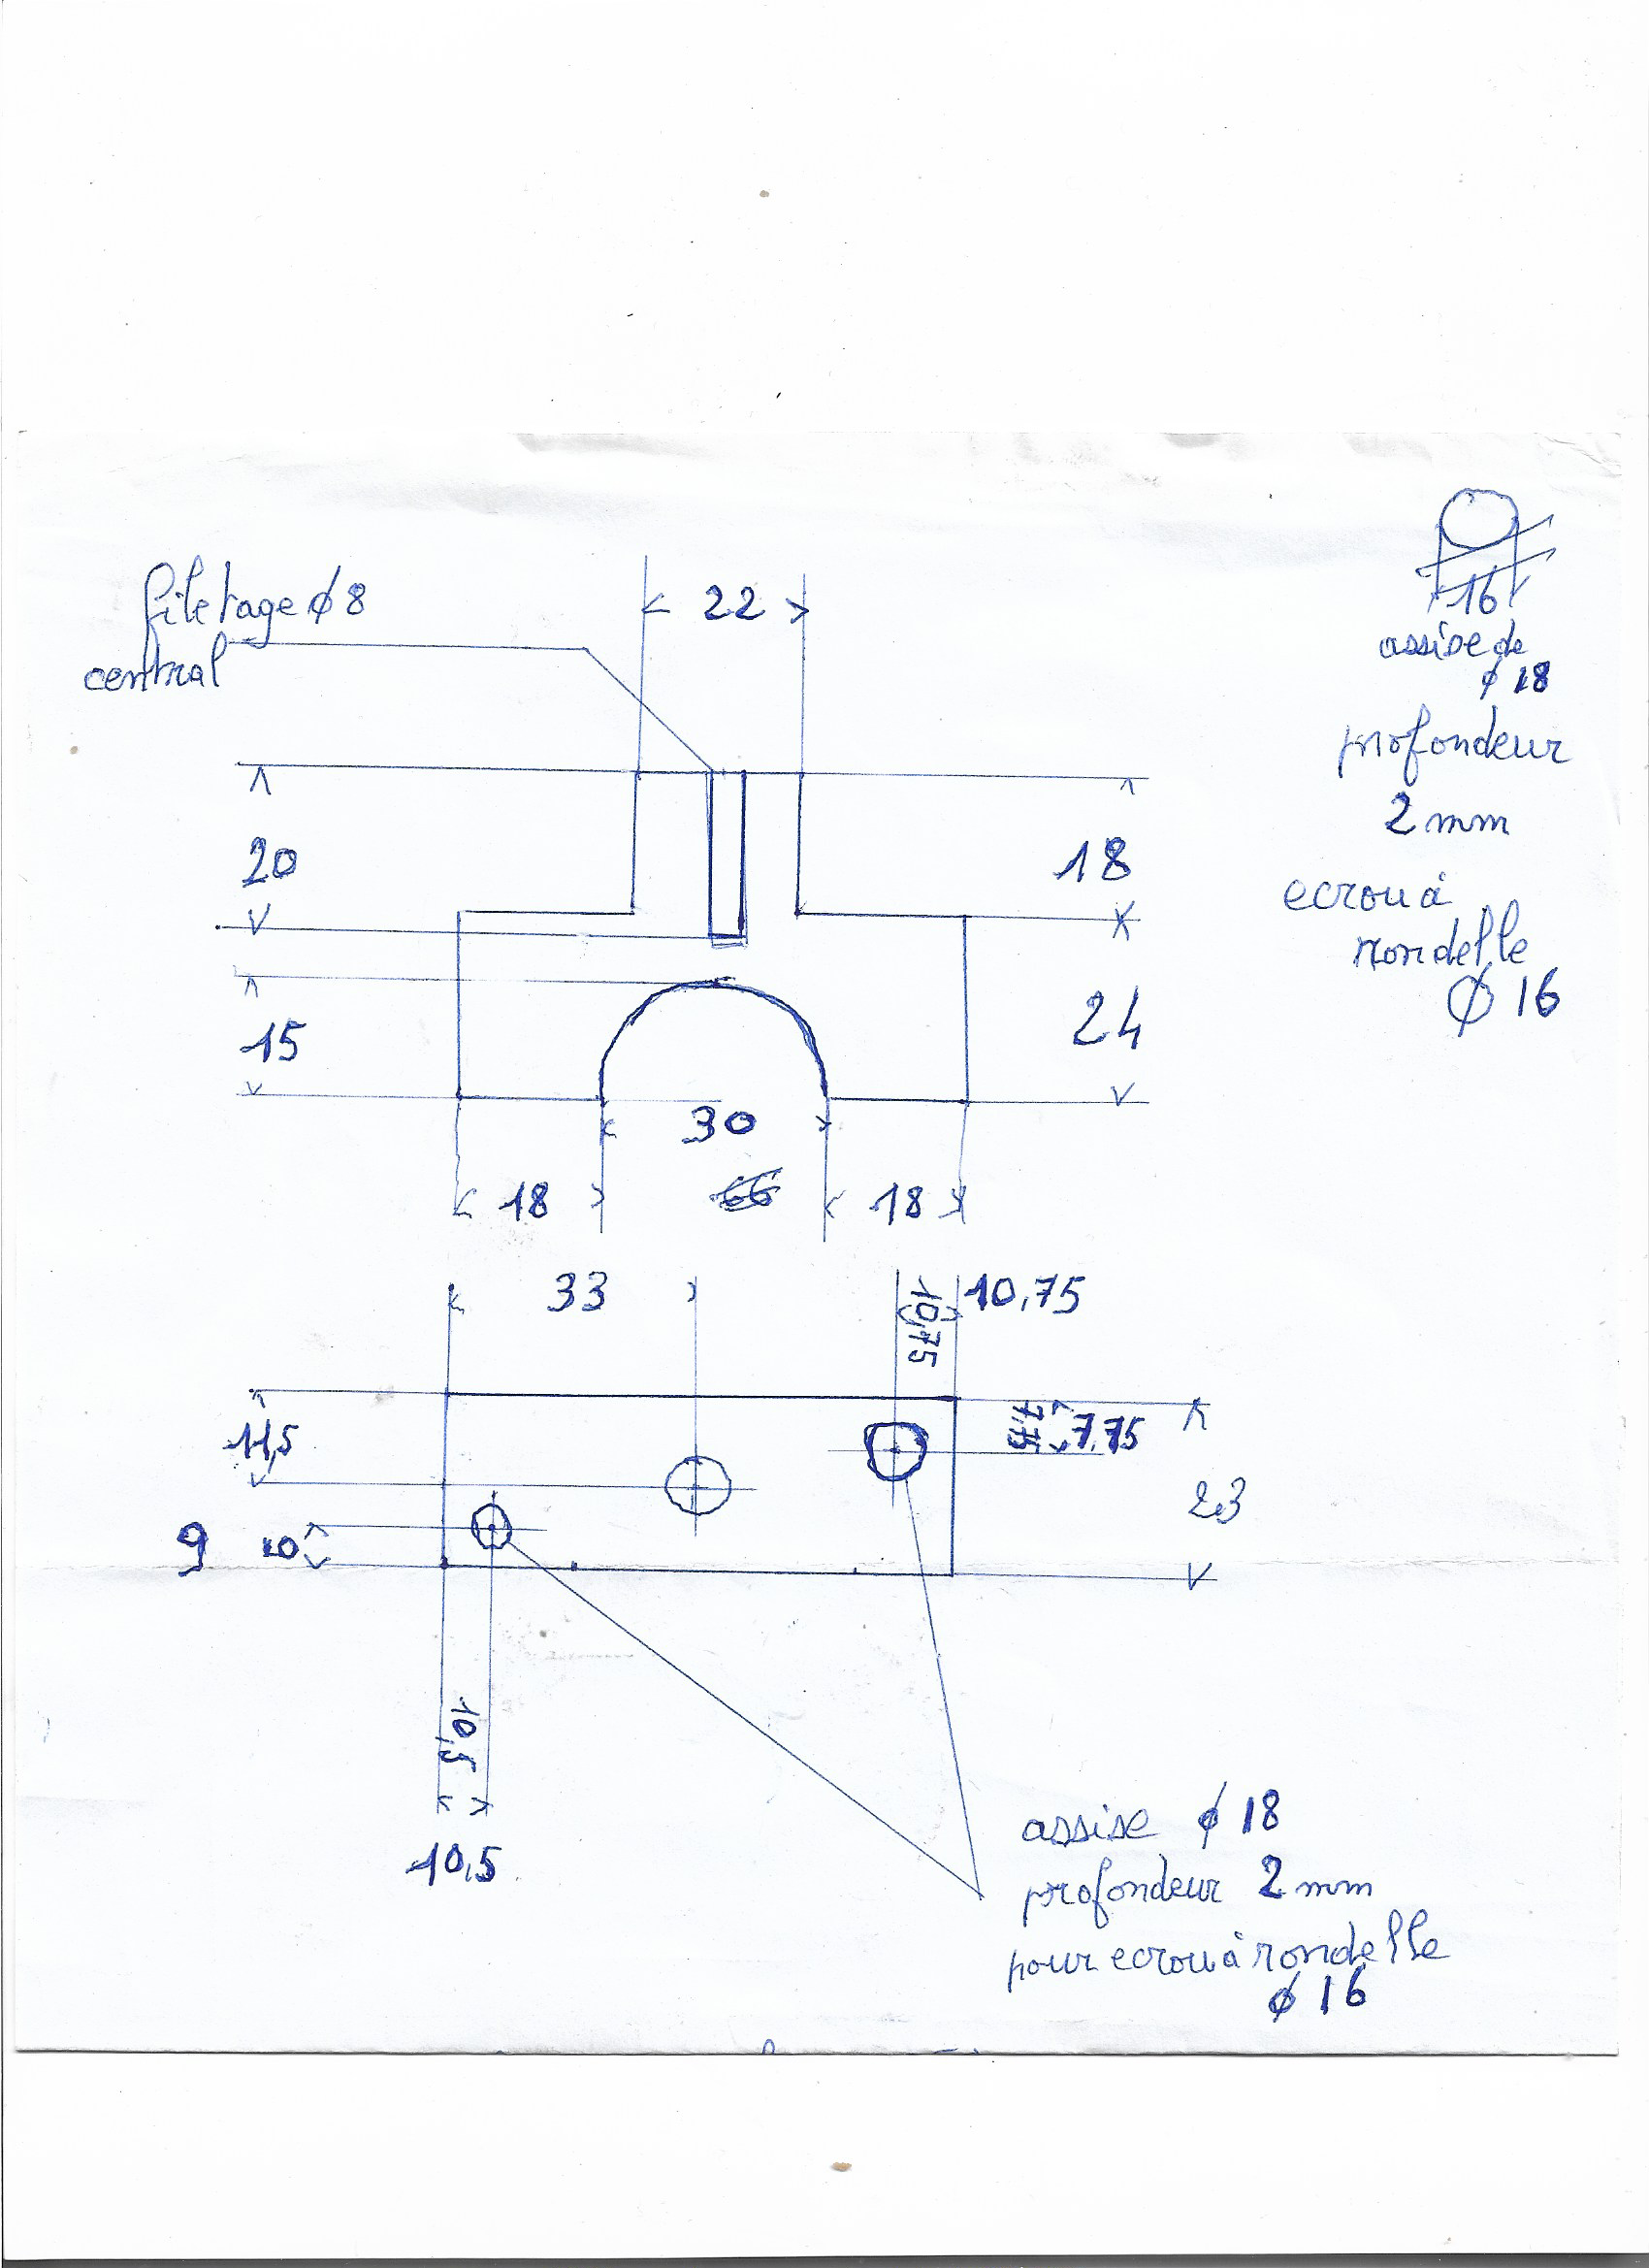 filetage ø 8
central
22
16
assise de
ø 18
profondeur
2 mm
ecrou à
rondelle
ø 16
20
18
15
24
30
18
66
18
33
10,75
10,75
11,5
7,75
7,75
23
9
10,5
10,5
assise ø 18
profondeur 2 mm
pour ecrou à rondelle
ø 16